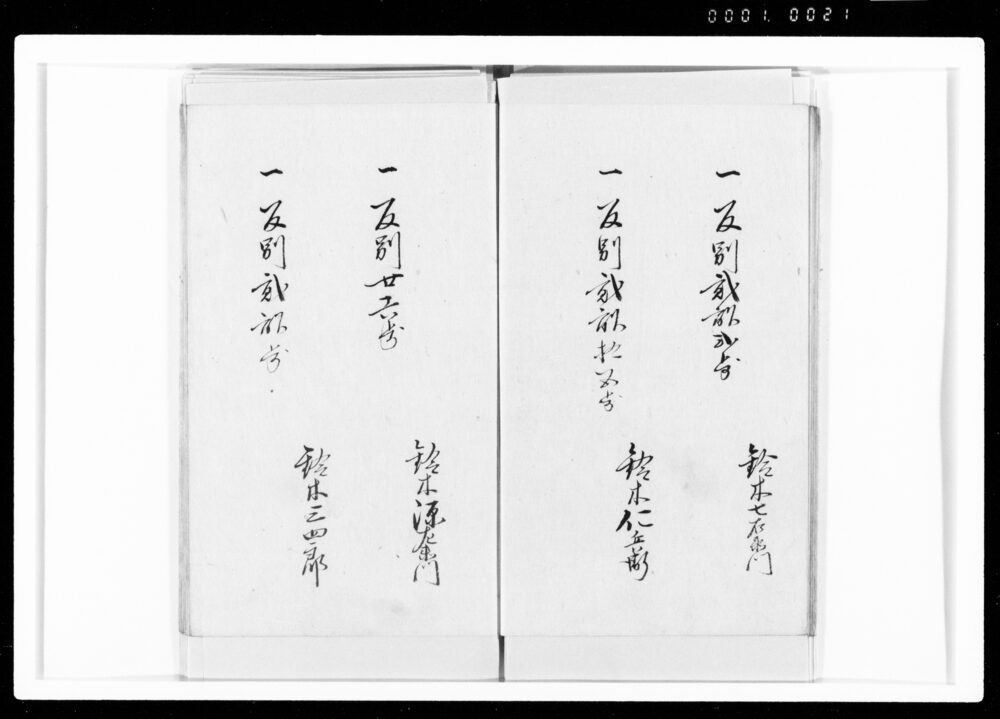 0001.0021
一反別貳畝弐歩
鈴木七右衛門
一反別貳畝拾五歩
鈴木仁兵衛
一反別廿六歩
鈴木源左衛門
一反別貳畝歩
鈴木三四郎